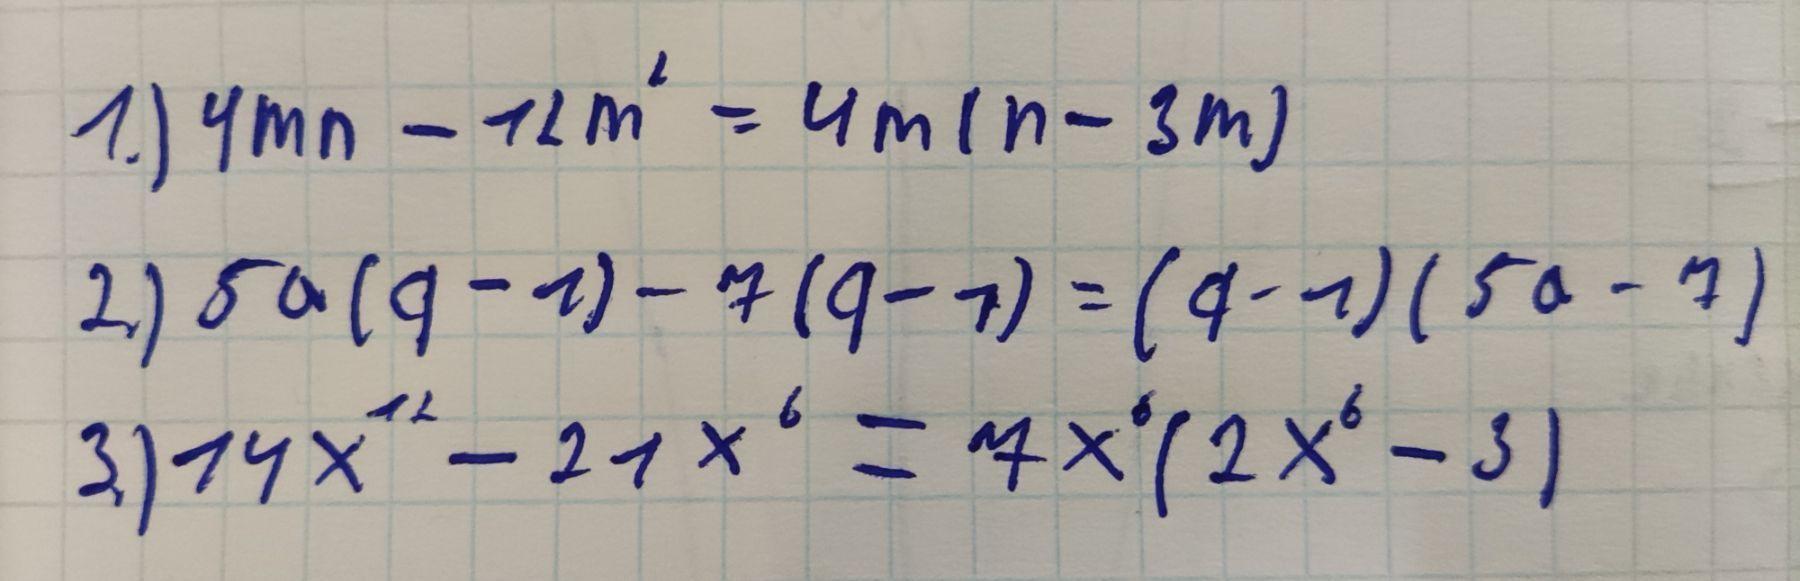 1.) 4mn - 12m² = 4m(n - 3m)
2.) 5a(q - 1) - 7(q - 1) = (q - 1)(5a - 7)
3.) 14x¹² - 21x⁶ = 7x⁶(2x⁶ - 3)